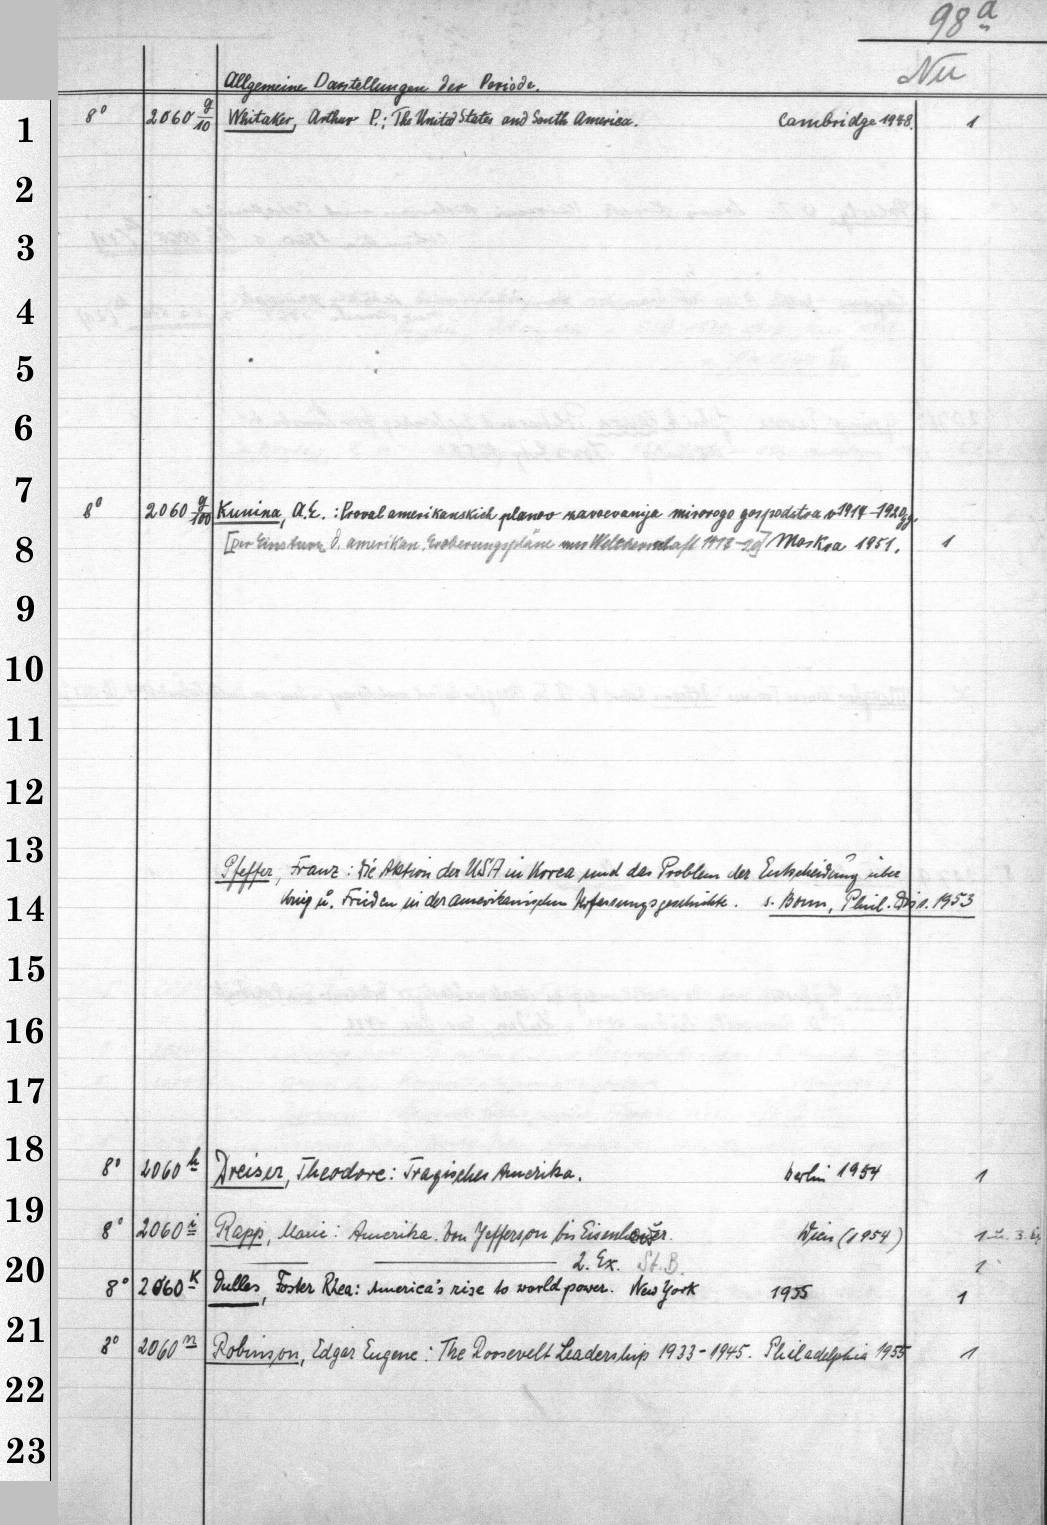 98 a
Nu
Allgemeine Darstellungen der Periode.
1 8° 2060 g/10 Whitaker, Arthur P.: The United States and South America. Cambridge 1948. 1
2
3
4
5
6
7 8° 2060 g/100 Kunina, A.E.: Proval amerikanskich planov zavoevanija mirovogo gospodstva v 1917-1920 gg.
8 [Der Einsturz d. amerikan. Eroberungspläne zur Weltherrschaft 1918-20] Moskva 1951. 1
9
10
11
12
13 Pfeffer, Franz: Die Aktion der USA in Korea und das Problem der Entscheidung über
14 Krieg u. Frieden in der amerikanischen Verfassungsgeschichte. s. Bonn, Phil. Diss. 1953
15
16
17
18 8° 2060 h Dreiser, Theodore: Tragisches Amerika. Berlin 1954 1
19 8° 2060 i Rapp, Marie: Amerika. Von Jefferson bis Eisenhower. Wien (1954) 1
20 2. Ex. St.B. 1
8° 2060 k Dulles, Foster Rhea: America's rise to world power. New York 1955 1
21 8° 2060 m Robinson, Edgar Eugene: The Roosevelt Leadership 1933-1945. Philadelphia 1955 1
22
23